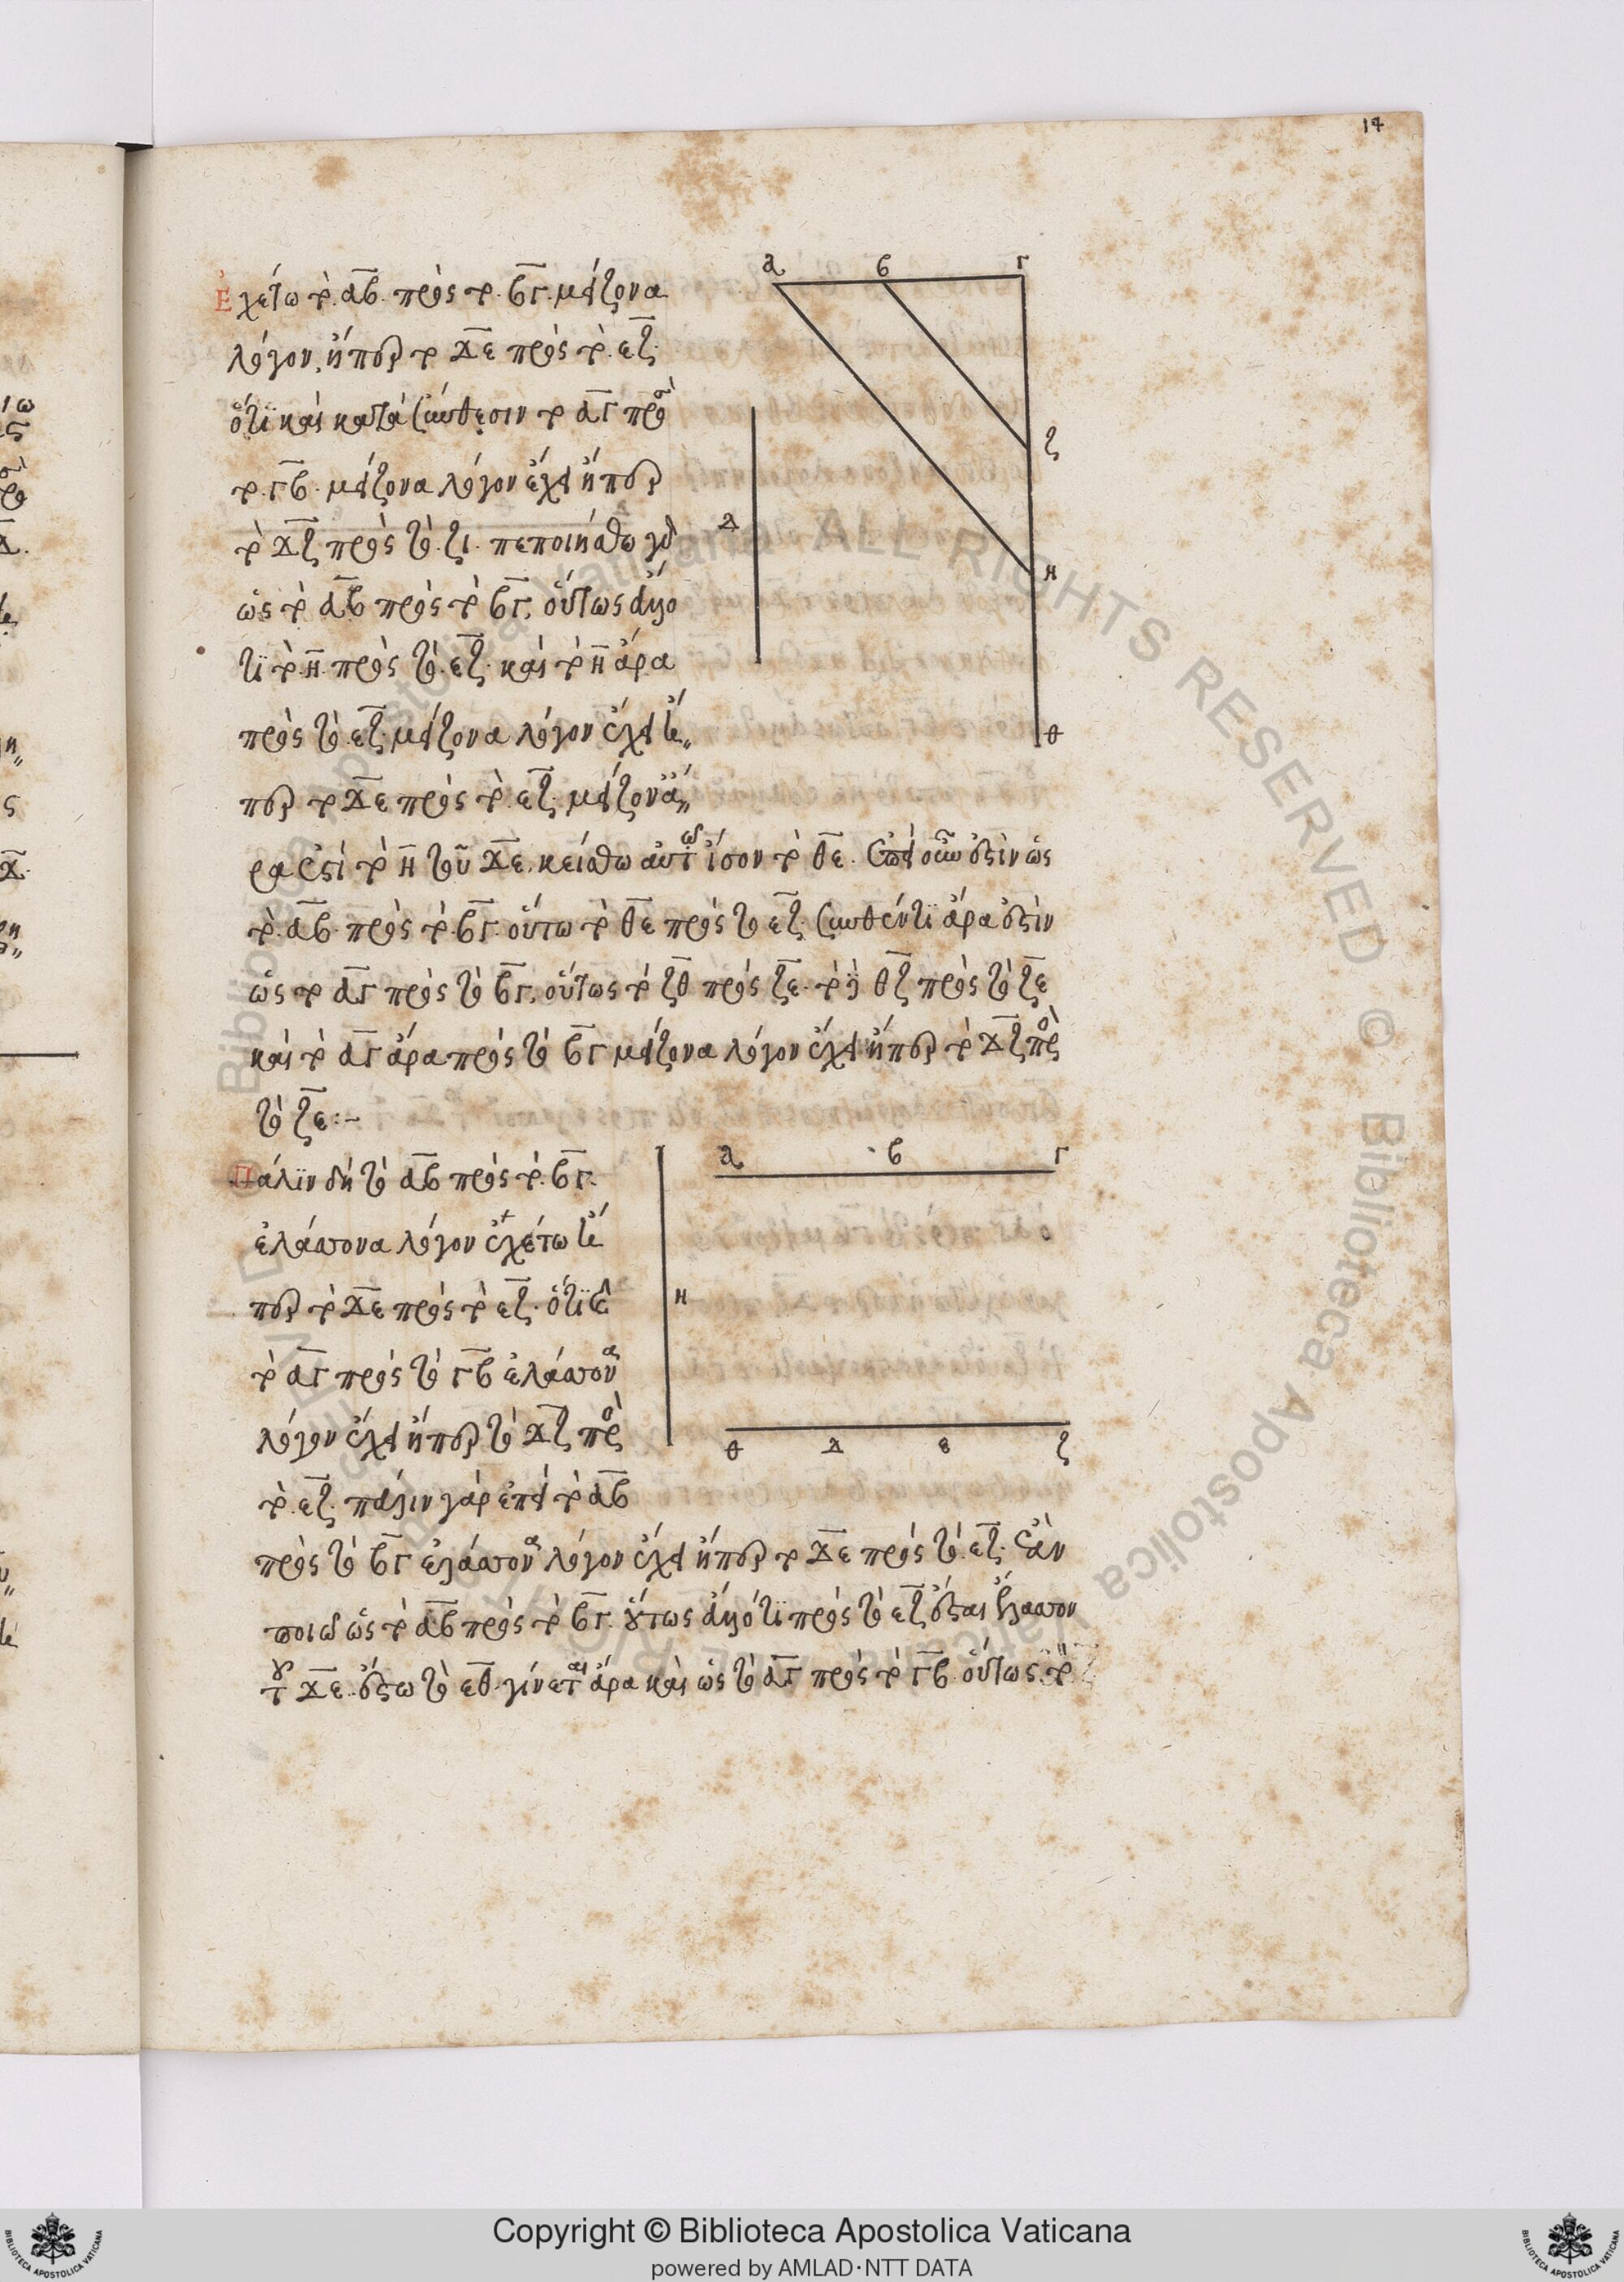 17
Ἐχέτω τὸ αβ πρὸς τὸ βγ μείζονα
λόγον ἤπερ τὸ δε πρὸς τὸ εζ
ὅτι καὶ κατὰ σύνθεσιν τὸ αγ πρὸς
τὸ γβ μείζονα λόγον ἔχει ἤπερ
τὸ δζ πρὸς τὸ ζε πεποιήσθω γὰρ
ὡς τὸ αβ πρὸς τὸ βγ, οὕτως ἄλλο
τι τὸ η πρὸς τὸ εζ καὶ τὸ η ἄρα
πρὸς τὸ εζ μείζονα λόγον ἔχει ἤ
περ τὸ δε πρὸς τὸ εζ μεῖζον ἄ
ρα ἐστὶ τὸ η τοῦ δε, κείσθω αὐτῷ ἴσον τὸ θε. ἐπεὶ οὖν ἐστὶν ὡς
τὸ αβ πρὸς τὸ βγ οὕτω τὸ θε πρὸς τὸ εζ συνθέντι ἄρα ἐστὶν
ὡς τὸ αγ πρὸς τὸ βγ, οὕτως τὸ ζθ πρὸς ζε τὸ δὲ θζ πρὸς τὸ ζε
καὶ τὸ αγ ἄρα πρὸς τὸ βγ μείζονα λόγον ἔχει ἤπερ τὸ δζ πρὸς
τὸ ζε:-
Πάλιν δὴ τὸ αβ πρὸς τὸ βγ
ἐλάττονα λόγον ἐχέτω ἤ
περ τὸ δε πρὸς τὸ εζ ὅτι καὶ
τὸ αγ πρὸς τὸ γβ ἐλάττονα
λόγον ἔχει ἤπερ τὸ δζ πρὸς
τὸ εζ πάλιν γὰρ ἐπεὶ τὸ αβ
πρὸς τὸ βγ ἐλάττονα λόγον ἔχει ἤπερ τὸ δε πρὸς τὸ εζ ἐὰν
ποιῶ ὡς τὸ αβ πρὸς τὸ βγ οὕτως ἄλλό τι πρὸς τὸ εζ ἔσται ἔλαττον
τοῦ δε ἔστω τὸ εθ γίνεται ἄρα καὶ ὡς τὸ αγ πρὸς τὸ γβ οὕτως τὸ
α β γ
ζ
δ
η
θ
α β γ
η
θ δ ε ζ
Biblioteca Apostolica Vaticana ALL RIGHTS RESERVED © Biblioteca Apostolica Vaticana ALL RIGHTS RESERVED
Copyright © Biblioteca Apostolica Vaticana
powered by AMLAD·NTT DATA
BIBLIOTECA APOSTOLICA VATICANA
BIBLIOTECA APOSTOLICA VATICANA